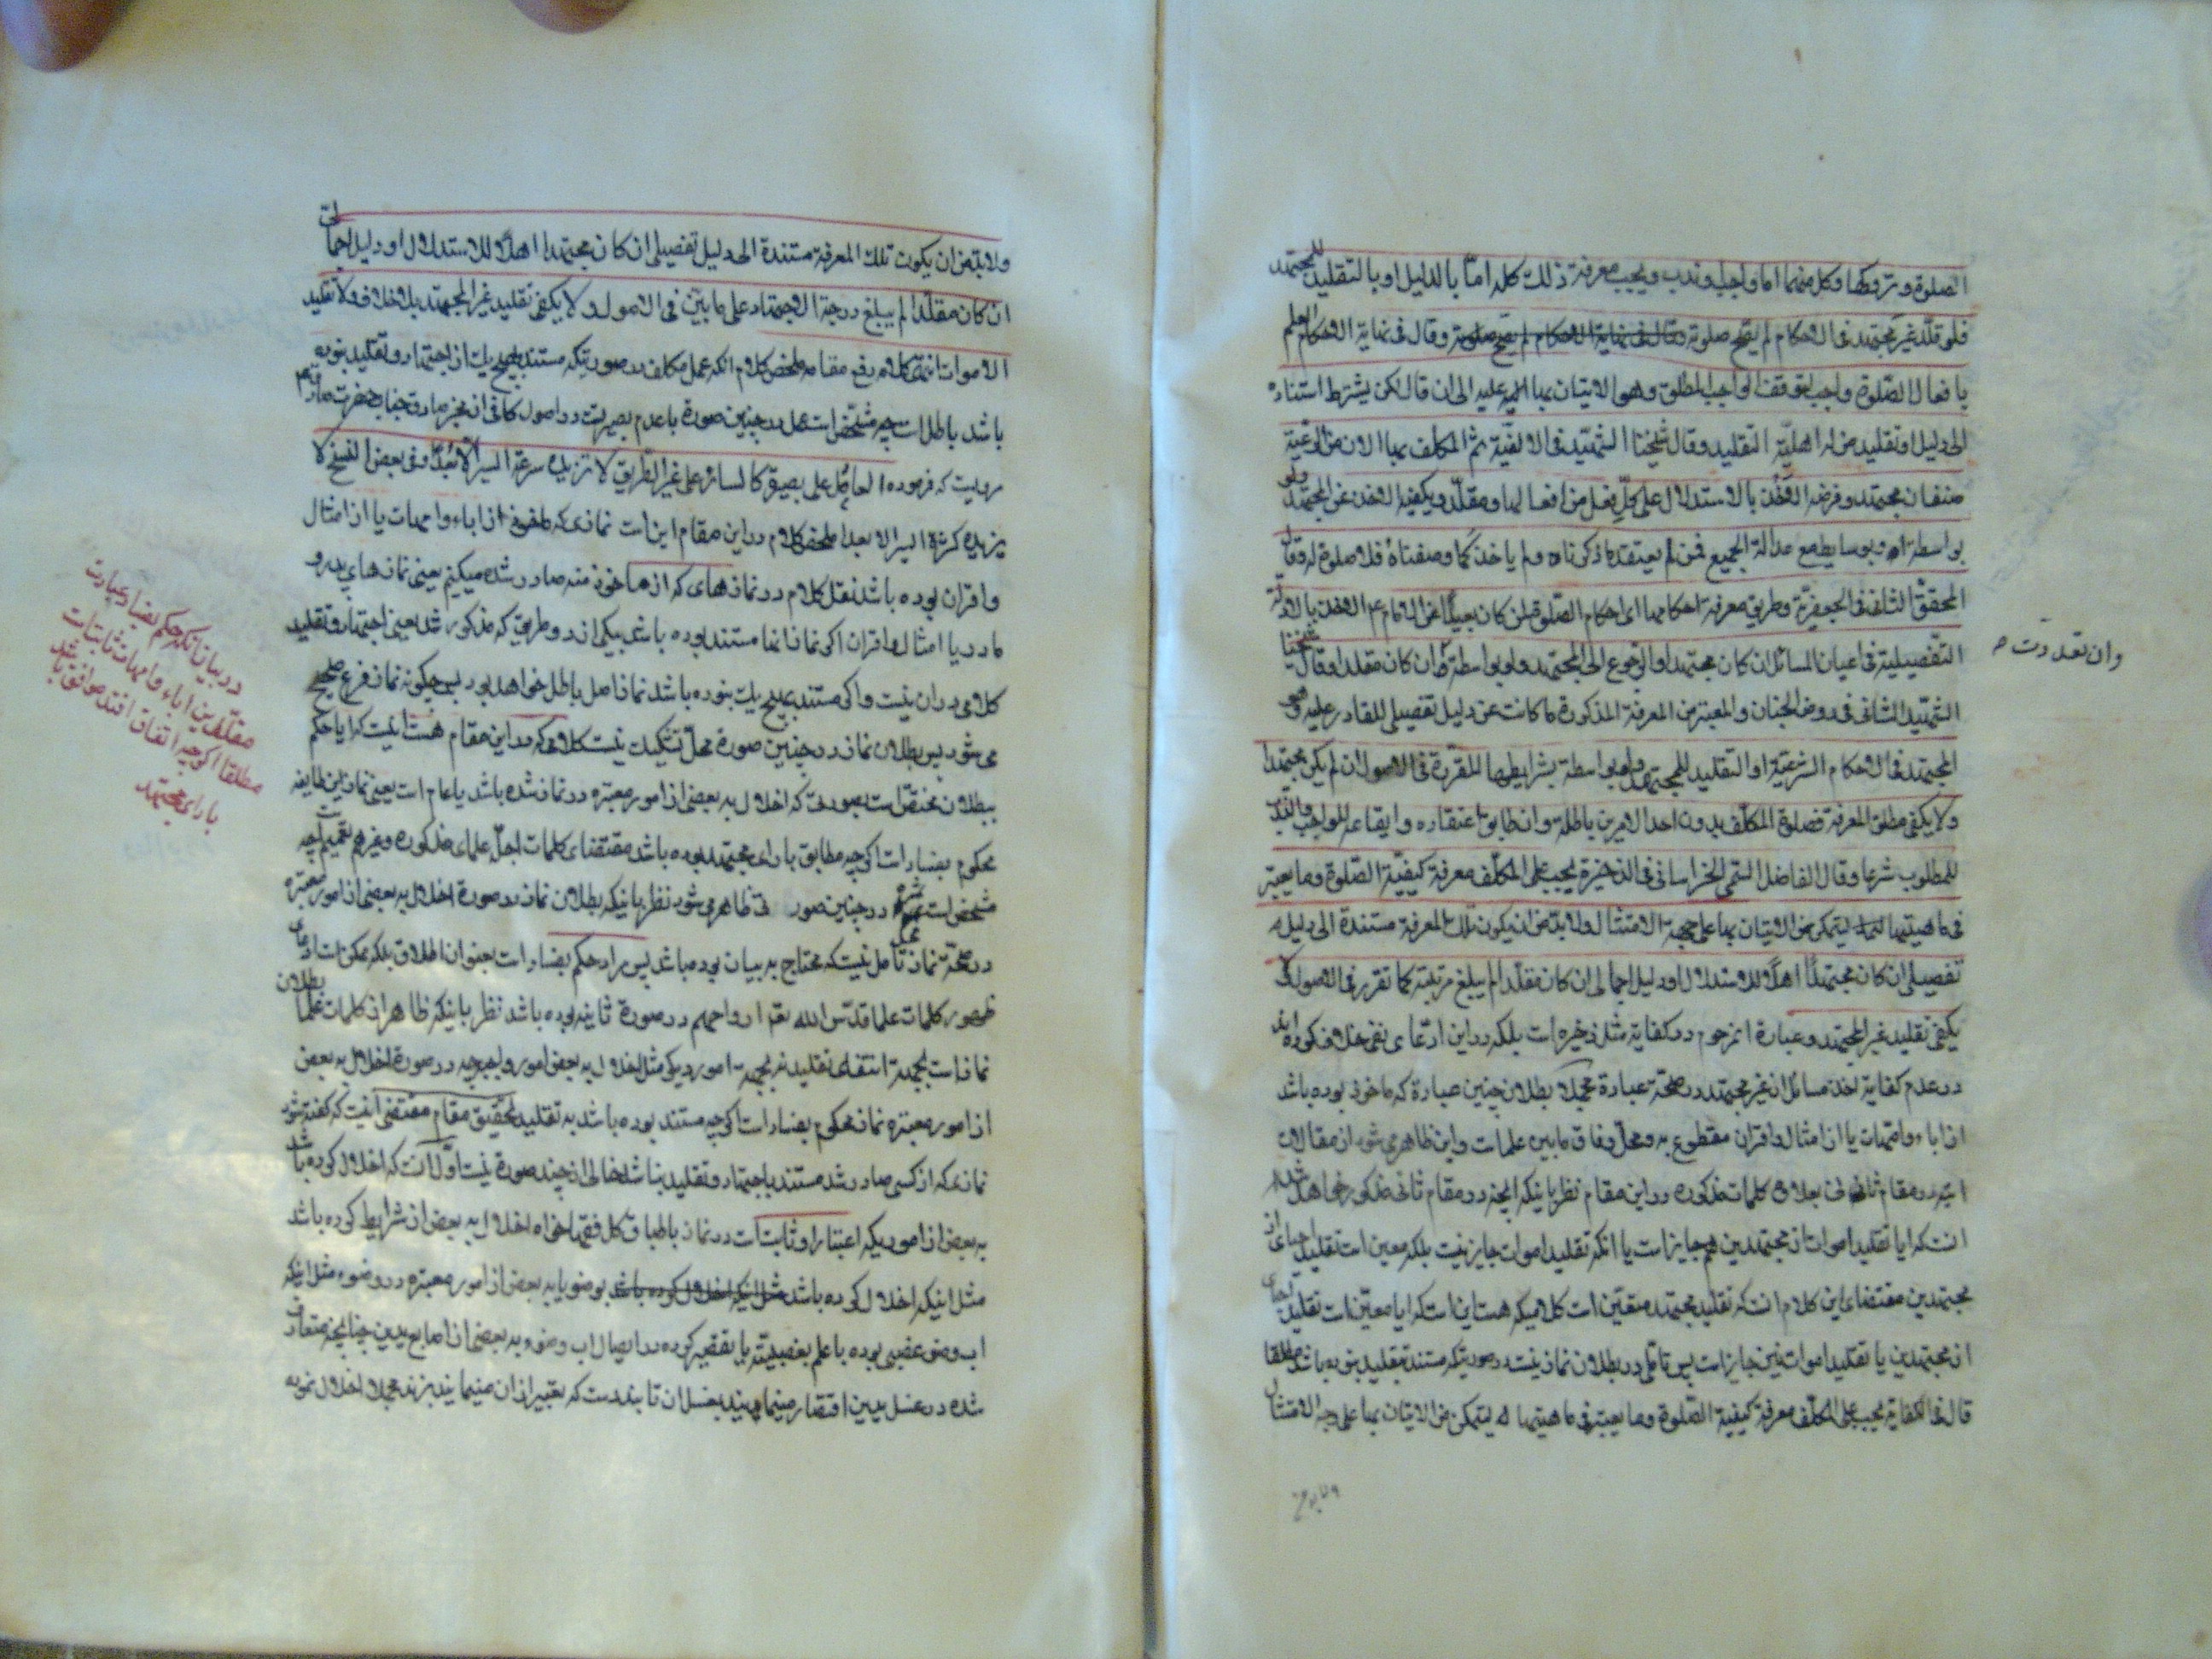 الصلوة وتروكها وكل منهما اما واجب او ندب ويجب معرفة ذلك كله امّا بالدليل او بالتقليد للمجتهد
فلو قلّد غير مجتهد فى الاحكام لم يصّح صلوته وقال فى نهاية الاحكام العلم
بافعال الصّلوة واجب لتوقف الواجب المطلق وهو الاتيان بما امر به عليه الى ان قال لكن يشترط استناده
الى دليل او تقليد من له اهليّة التقليد وقال شيخنا الشّهيد فى الالفيّة ثم المكلّف بها الان من الرّعيّة
صنفان مجتهد وفرضه الاخذ بالاستدلال على كلّ فعل من افعالها ومقلّد ويكفيه الاخذ عن المجتهد ولو
بواسطة او بوسايط مع عدالة الجميع فمن لم يعتقد ما ذكرناه ولم ياخذ كما وصفناه فلا صلوة له وقال
المحقق الثانى فى الجعفريّة وطريق معرفة احكامها اى احكام الصّلوة لمن كان بعيدًا عن الامام ع الاخذ بالادلّة
التفصيلية فى اعيان المسائل ان كان مجتهدا والرّجوع الى المجتهد ولو بواسطة ان كان مقلدا وقال شيخنا
وان تعددت ص
الشّهيد الثانى فى روض الجنان والمعتبر من المعرفة المذكورة ما كانت عن دليل تفصيلى للقادر عليه وهو
المجتهد فى الاحكام الشرعيّة او التقليد للمجتهد ولو بواسطة بشرايطها المقررة فى الاصول ان لم يكن مجتهدا
ولا يكفى مطلق المعرفة فصلوة المكلّف بدون احد الامرين باطلة وان طابق اعتقاده وايقاعه للواجب والندب
للمطلوب شرعا وقال الفاضل السّمى الخراسانى فى الذخيرة يجب على المكلّف معرفة كيفيّة الصّلوة وما يعتبر
فى ماهيتها ليتمكن من الاتيان بها على جهة الامتثال ولا بدّ من ان يكون تلك المعرفة مستندة الى دليل
تفصيلى ان كان مجتهدًا اهلًا للاستدلال او دليل اجمالى ان كان مقلّدا لم يبلغ مرتبته كما تقرر فى الاصول ولا
يكفى تقليد غير المجتهد وعبارة انمرحوم در كفاية مثل ذخيره است بلكه در اين ادّعاى نفى خلاف كرده اند
در عدم كفاية اخذ مسائل از غير مجتهد در صحّة عبادة مجملا بطلان چنين عبادة كه ماخوذ بوده باشد
از اباء وامّهات يا از امثال واقران مقطوع به ومحلّ وفاق مابين علماست واين ظاهر مى شود از مقالات
اتيه در مقام ثانى بعلاوه كلمات مذكوره در اين مقام نظر باينكه انچه در مقام ثانى مذكور خواهد شد
انست كه ايا تقليد اموات از مجتهدين هم جايز است يا انكه تقليد اموات جايز نيست بلكه معين است تقليد احياى از
مجتهدين مقتضاى اين كلام انست كه تقليد مجتهد متعّين است كلاميكه هست اين است كه ايا معيّن است تقليد احياى
از مجتهدين يا تقليد اموات نيز جايز است پس تامّلى در بطلان نماز نيست در صورتيكه مستند بتقليد نبوده باشد مطلقا
قال فى الكفاية يجب على المكلّف معرفة كيفية الصّلوة وما يعتبر فى ماهيتها ليتمكن من الاتيان بها على وجه الامتثال
ولا بدّ من ان يكون تلك المعرفة مستندة الى دليل تفصيلى ان كان مجتهدا اهلًا للاستدلال او دليل اجمالى
ان كان مقلّدا لم يبلغ درجة الاجتهاد على ما بيّن فى الاصول ولا يكفى تقليد غير المجتهد بلا خلاف ولا تقليد
الاموات انتهى كلامه رفع مقامه ملخص كلام انكه عمل مكلف در صورتيكه مستند بهيچ يك از اجتهاد وتقليد نبوده
باشد باطل است چه مشخّص است عمل در چنين صورة با عدم بصيرت در اصول كافى از مخبر صادق جناب حضرت صادق
مرويست كه فرموده العامل على غير بصيرة كالسائر على غير الطّريق لا تزيده سرعة السير الّا بُعدًا وفى بعض النسخ لا
يزيده كثرة السير الا بعدا ملخص كلام در اين مقام اين است نمازى كه ماخوذ از اباء وامهات يا از امثال
واقران بوده باشد نقل كلام در نماز هاى كه از ماخوذ منه صادر شده ميكنيم يعنى نماز هاى پدر و
مادر يا امثال واقران اگر نماز انها مستند بوده باشد بيكى از دو طريق كه مذكور شد يعنى اجتهاد وتقليد
كلامى در ان نيست واگر مستند بهيچ يك نبوده باشد نماز اصل باطل خواهد بود پس چگونه نماز فرع صحيح
مى شود پس بطلان نماز در چنين صورة محلّ تشكيك نيست كلامى كه در اين مقام هست اينست كه ايا حكم
ببطلان مختصّ است بصورتى كه اخلال به بعضى از امور معتبره در نماز شده باشد يا عام است يعنى نماز اين طايفه
محكوم بفساد است اگر چه مطابق با راى مجتهد بوده باشد مقتضاى كلمات اجلّه علماى مذكوره وغيرهم تعميم است چه
مشخص است ثمره در چنين صورتى ظاهر مى شود نظر باينكه بطلان نماز در صورة اخلال به بعضى از امور معتبره
در صحّة نماز محلّ تامّل نيست كه محتاج به بيان بوده باشد پس مراد حكم بفساد است بعنوان اطلاق بلكه ممكن است ادعاى
ظهور كلمات علما قدّس الله تعالى ارواحهم در صورة ثانيه بوده باشد نظر باينكه ظاهر از كلمات علما بطلان
نماز است بجهة انتفاى تقليد نه بجهة امور ديگر مثل اخلال به بعض امور واجبه چه در صورة اخلال به بعض
از امور معتبره نماز محكوم بفساد است اگر چه مستند بوده باشد به تقليد تحقيق مقام مقتضى انست كه گفته شود
نمازى كه از كسى صادر شد مستند باجتهاد وتقليد نباشد خالى از چند صورة نيست اوّل انست كه اخلال كرده باشد
به بعض از اموريكه اعتبار او ثابت است در نماز باطباق كل فقها خواه اخلال به بعض از شرايط كرده باشد
مثل اينكه اخلال كرده باشد بوضو يا به بعض از امور معتبره در وضوء مثل اينكه
اب وضو غصبى بوده با علم بغصبيّته يا تقصير كرده در ايصال اب وضوء به بعضى از اصابع يدين چنانچه متعارف
شده در غسل يدين اقتصار مينمايند بغسل ان تا بند دست كه تعبير از ان مينمايند بزند مجملا اخلال نموده
در بيان انكه حكم بفساد عبادت
مقلّدين اباء وامهات ثابت است
مطلقا اگر چه اتفاق افتد موافق باشد
با راى مجتهد